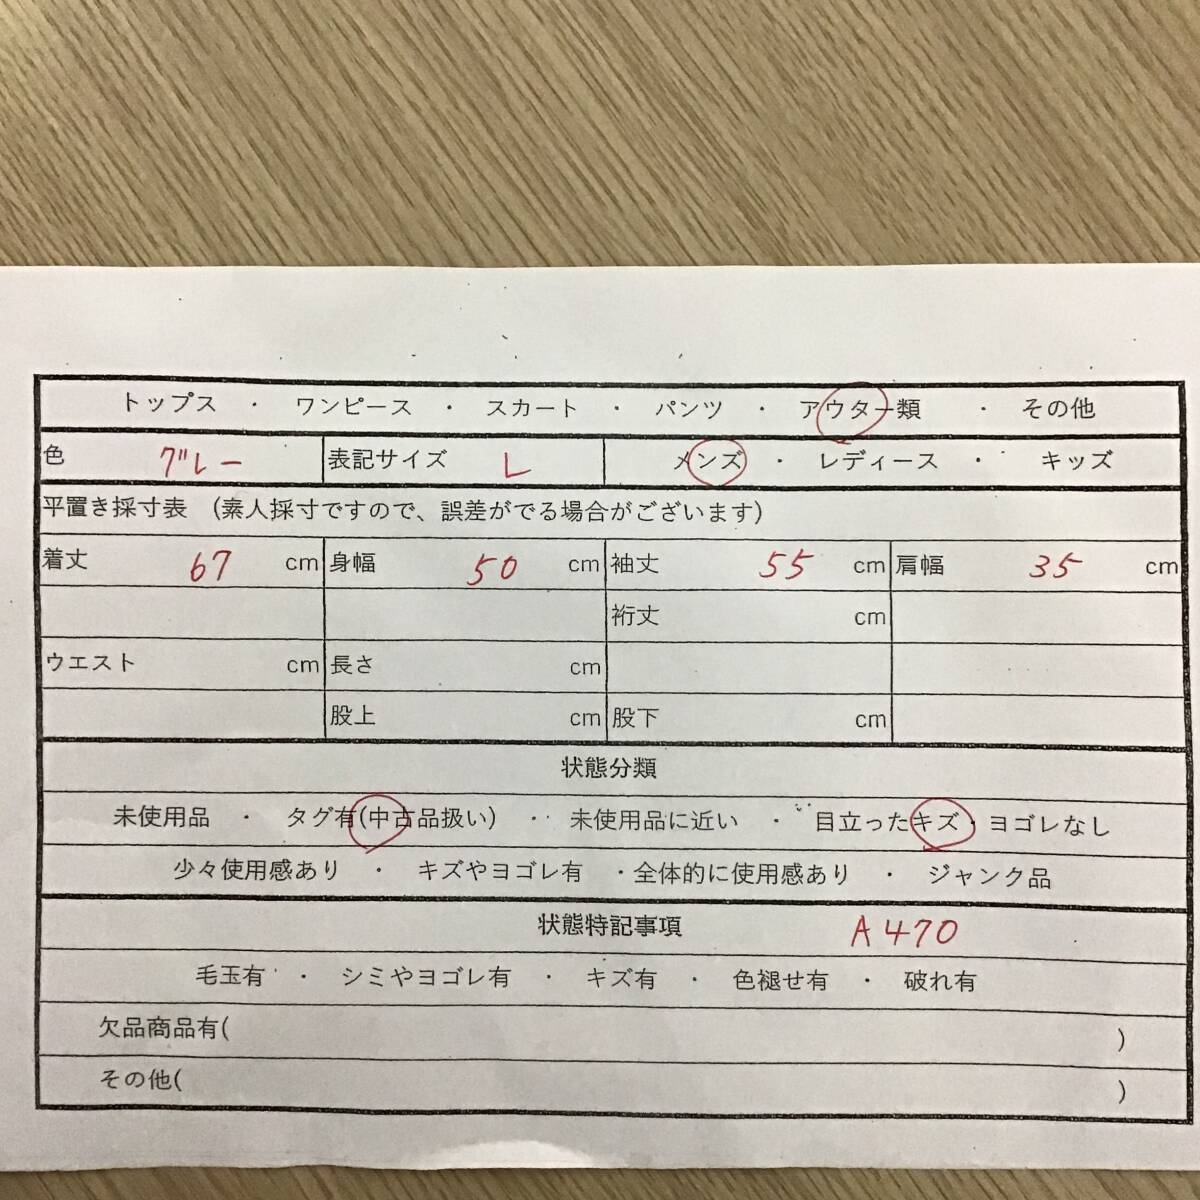 トップス ・ ワンピース ・ スカート ・ パンツ ・ アウター類 ・ その他
色 グレー 表記サイズ L メンズ ・ レディース ・ キッズ
平置き採寸表 (素人採寸ですので、誤差がでる場合がございます)
着丈 67 cm 身幅 50 cm 袖丈 55 cm 肩幅 35 cm
裄丈 cm
ウエスト cm 長さ cm
股上 cm 股下 cm
状態分類
未使用品 ・ タグ有(中古品扱い) ・・ 未使用品に近い ・ 目立ったキズ・ヨゴレなし
少々使用感あり ・ キズやヨゴレ有 ・全体的に使用感あり ・ ジャンク品
状態特記事項 A470
毛玉有 ・ シミやヨゴレ有 ・ キズ有 ・ 色褪せ有 ・ 破れ有
欠品商品有( )
その他( )